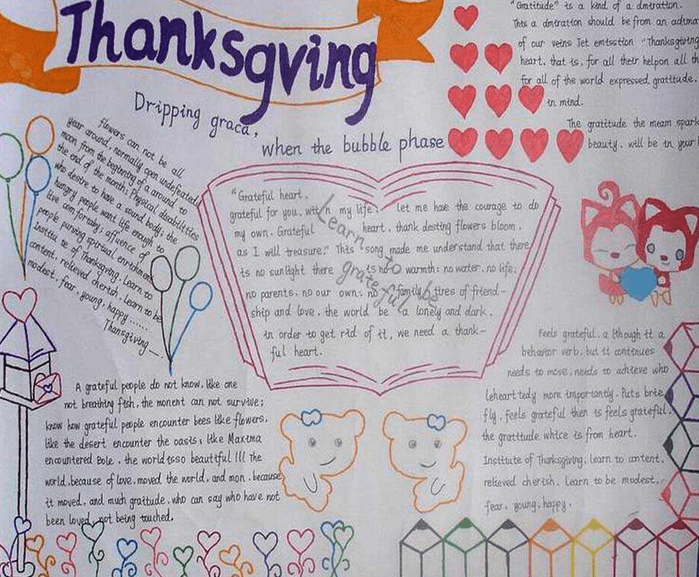 Thanksgving
Dripping graca,
when the bubble phase
"Gratitude" is a kind of a dmtration.
This a dmtration should be from an
of our veins Jet emtsstion "Thanksgiving
heart, that is, for all their helpon all th
for all of the world expressed gratitude,
in mind.
The gratitude the meam spark
beauty, will be in your
flowers can not be all
year around, normally open undefeated,
moon from the beginning of a around to
the end of the month; Physical disabilities
who desire to have a sound body; the
hungry people want life enough to
live comfortably; affluence of
people pursing spiritual enrichment
Institu te of Thanksgiving, Learn to
content, relieved cherish, learn to be
modest, fear, young, happy......
Thansgiving...
"Grateful heart,
grateful for you, with n my life, let me hae the courage to do
my own. Grateful heart, thank desting flowers bloom,
as I will treasure." This "song made me understand that there
is no sunlight there is no warmth; no water, no life;
no parents, no our own; no family tires of friend-
ship and love, the world be a lonely and dark,
in order to get rid of it, we need a thank-
ful heart.
Learn to be grateful
A grateful people do not know, like one
not breathing fish, the monent can not survive;
know how grateful people encounter bees like flowers,
like the desert encounter the oasts, like Maxima
encountered Bole, the world isso beautiful !!! the
world, because of love, moved the world, and mon, because
it moved, and much graitude, who can say who have not
been loved, not being touched.
Feels grateful, a lthough it a
behavior verb, but it continues
needs to move, needs to achteve who
Leheart tedly more importantly. Puts brie
fly, feels grateful then is feels grateful,
the gratttude whtce is from heart.
Institute of Thanksgiving, learn to content,
relieved cherish, Learn to be modest,
fear, young, happy.